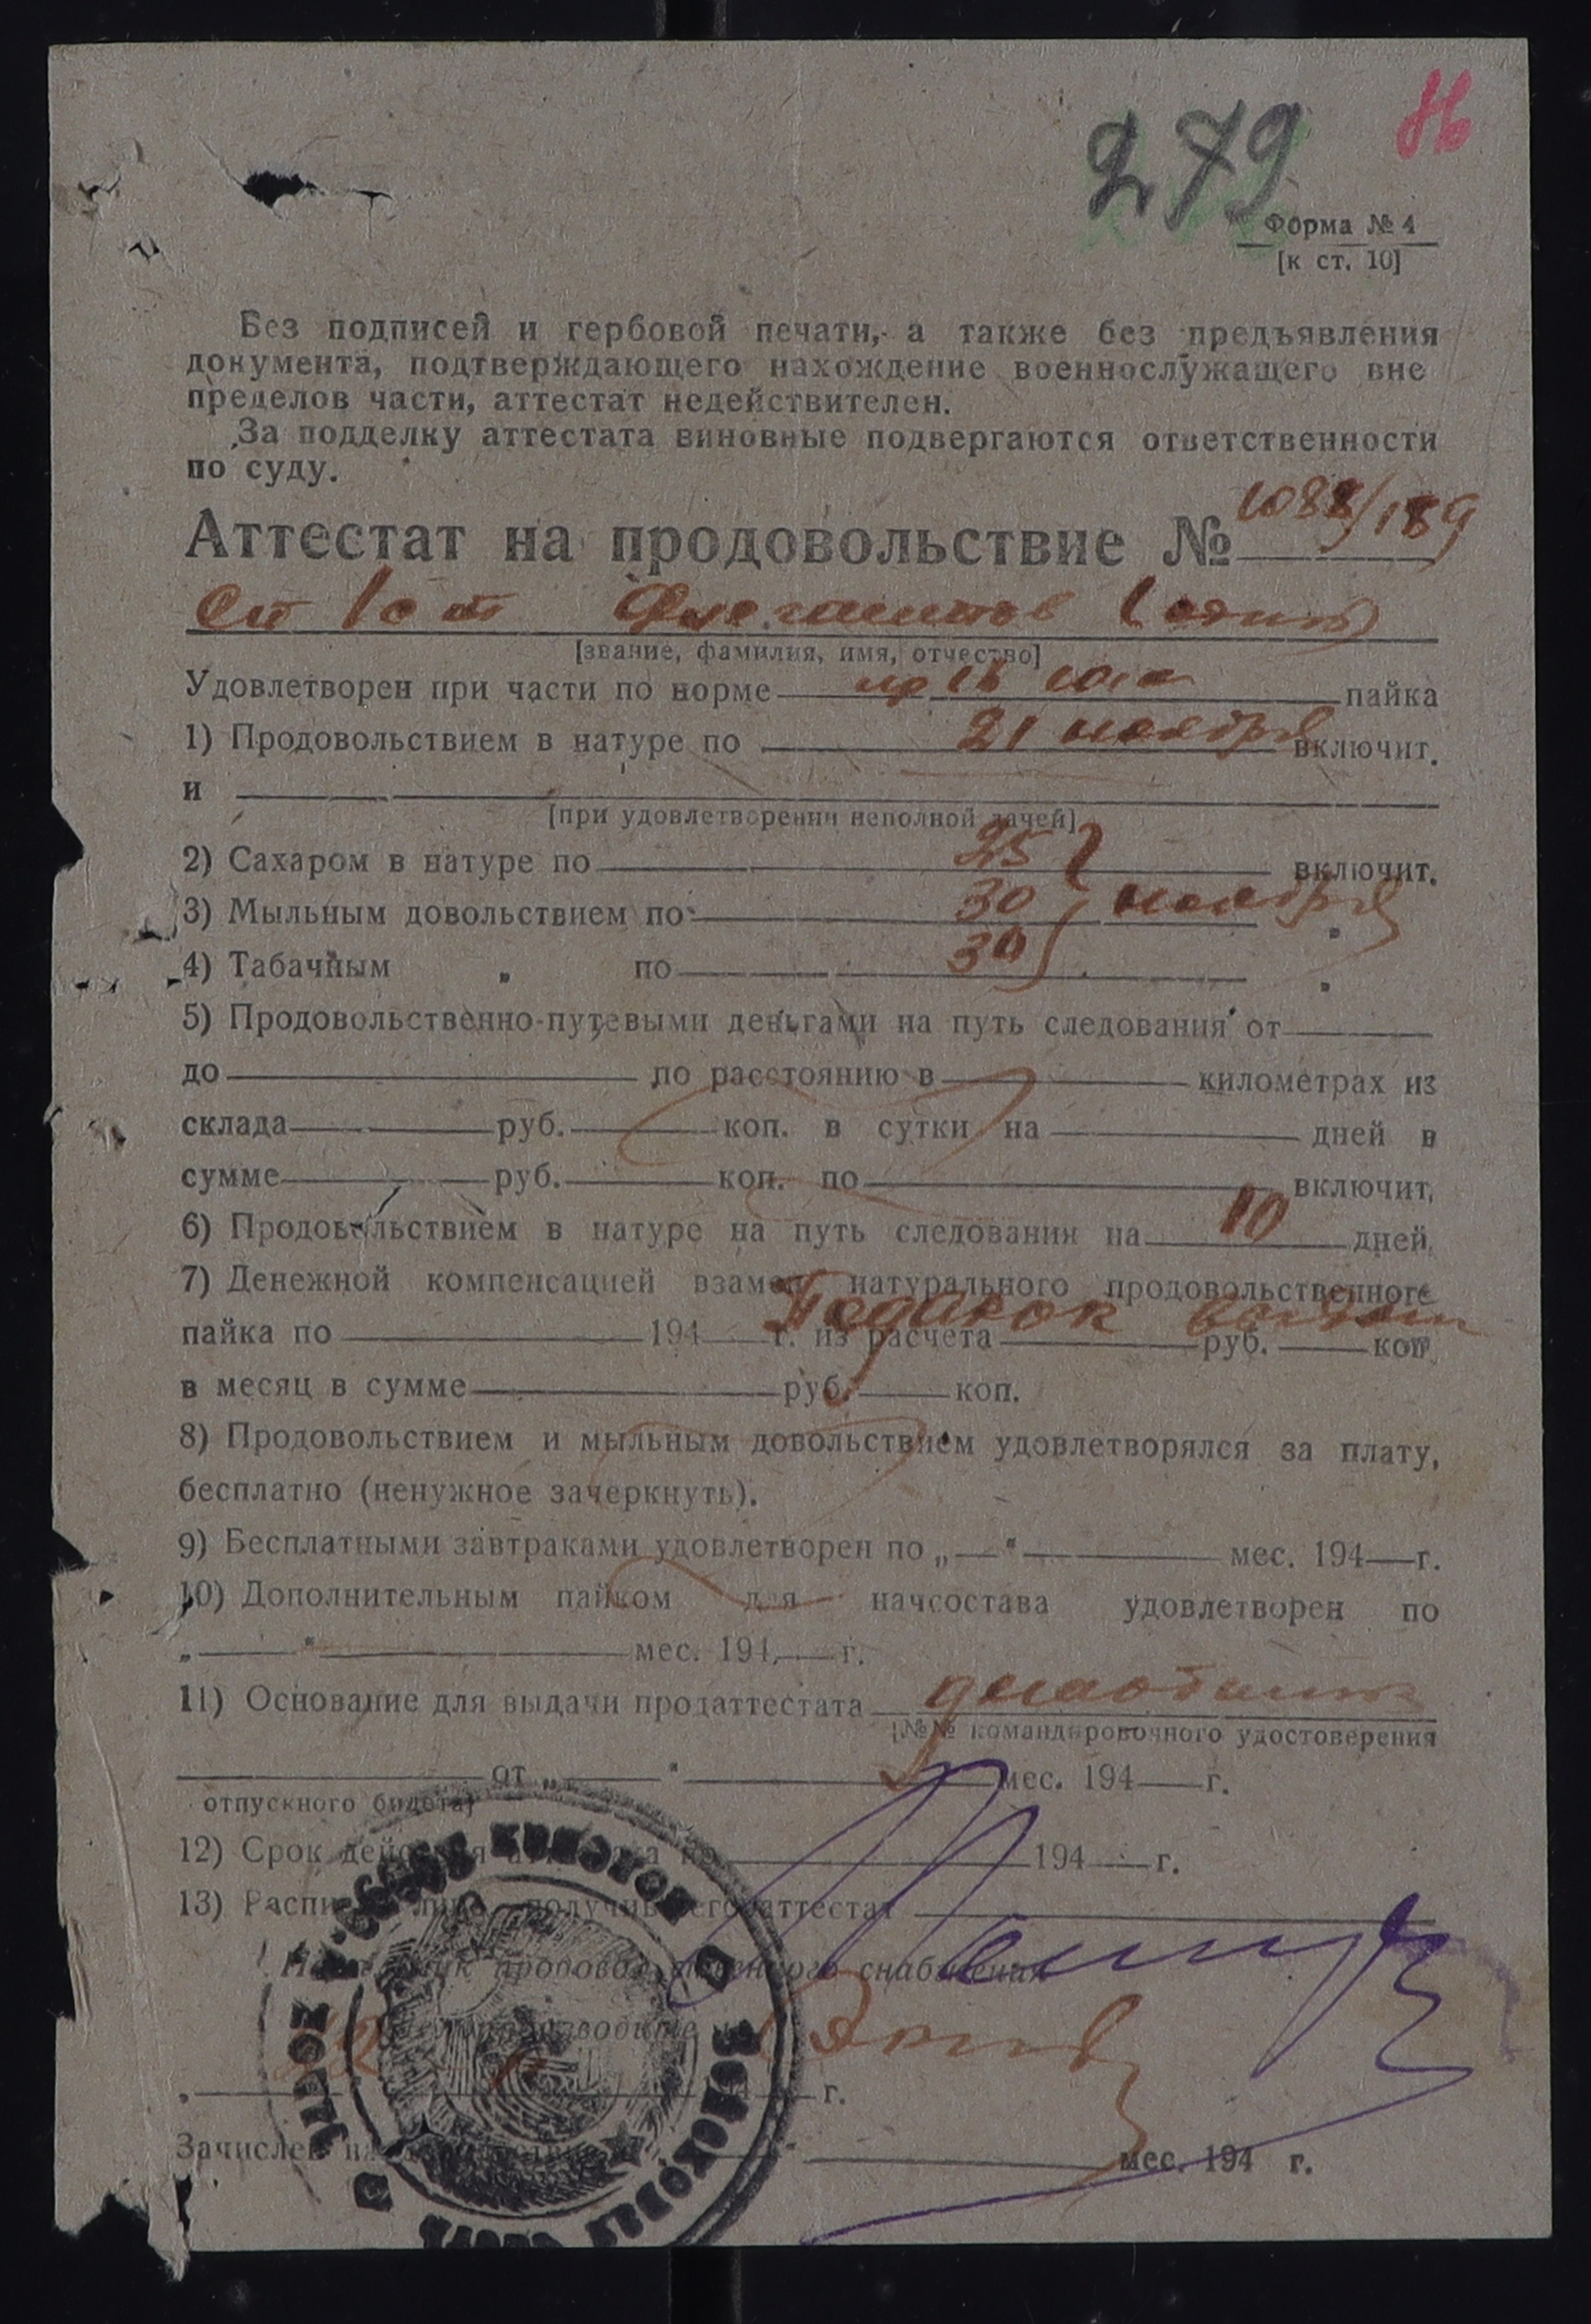 279
Форма № 4
[к ст. 10]
Без подписей и гербовой печати, а также без предъявления
документа, подтверждающего нахождение военнослужащего вне
пределов части, аттестат недействителен.
За подделку аттестата виновные подвергаются ответственности
по суду.
Аттестат на продовольствие № 1088/189
[звание, фамилия, имя, отчество]
Удовлетворен при части по норме пайка
1) Продовольствием в натуре по 21 ноября включит.
и
[при удовлетворении неполной дачей]
2) Сахаром в натуре по 25 включит.
3) Мыльным довольствием по 30 ноября "
4) Табачным " по 30 "
5) Продовольственно-путевыми деньгами на путь следования от
до по расстоянию в километрах из
склада руб. коп. в сутки на дней в
сумме руб. коп. по включит.
6) Продовольствием в натуре на путь следования на 10 дней.
7) Денежной компенсацией взамен натурального продовольственного
Подарок выдан
пайка по 194 г. из расчета руб. коп.
в месяц в сумме руб. коп.
8) Продовольствием и мыльным довольствием удовлетворялся за плату,
бесплатно (ненужное зачеркнуть).
9) Бесплатными завтраками удовлетворен по „ " мес. 194 г.
10) Дополнительным пайком для начсостава удовлетворен по
„ " мес. 194 г.
11) Основание для выдачи продаттестата
[№№ командировочного удостоверения
от „ " мес. 194 г.
отпускного билета]
12) Срок действия 194 г.
13) получившего аттестат
Начальник продовольственного снабжения
г.
Зачислен на мес. 194 г.